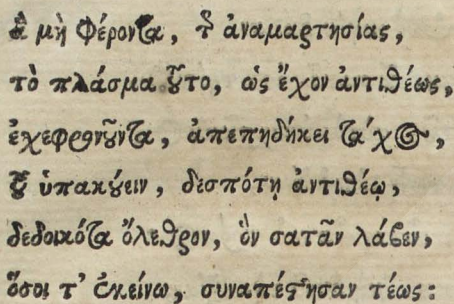 ἃ μὴ φέροντα, τ ἀναμαρτησίας,
τὸ πλάσμα ȣ͂το, ὡς ἔχον ἀντιθέως,
ἐχεφρονȣ͂ντα, ἀπεπηδήκει τάχος,
ȣ͂ ὑπακȣ́ειν, δεσπότῃ ἀντιθέῳ,
δεδοικότα ὄλεθρον, ὃν σατᾶν λάβεν,
ὅσοι τ' ἐκείνω, συναπέστησαν τέως: